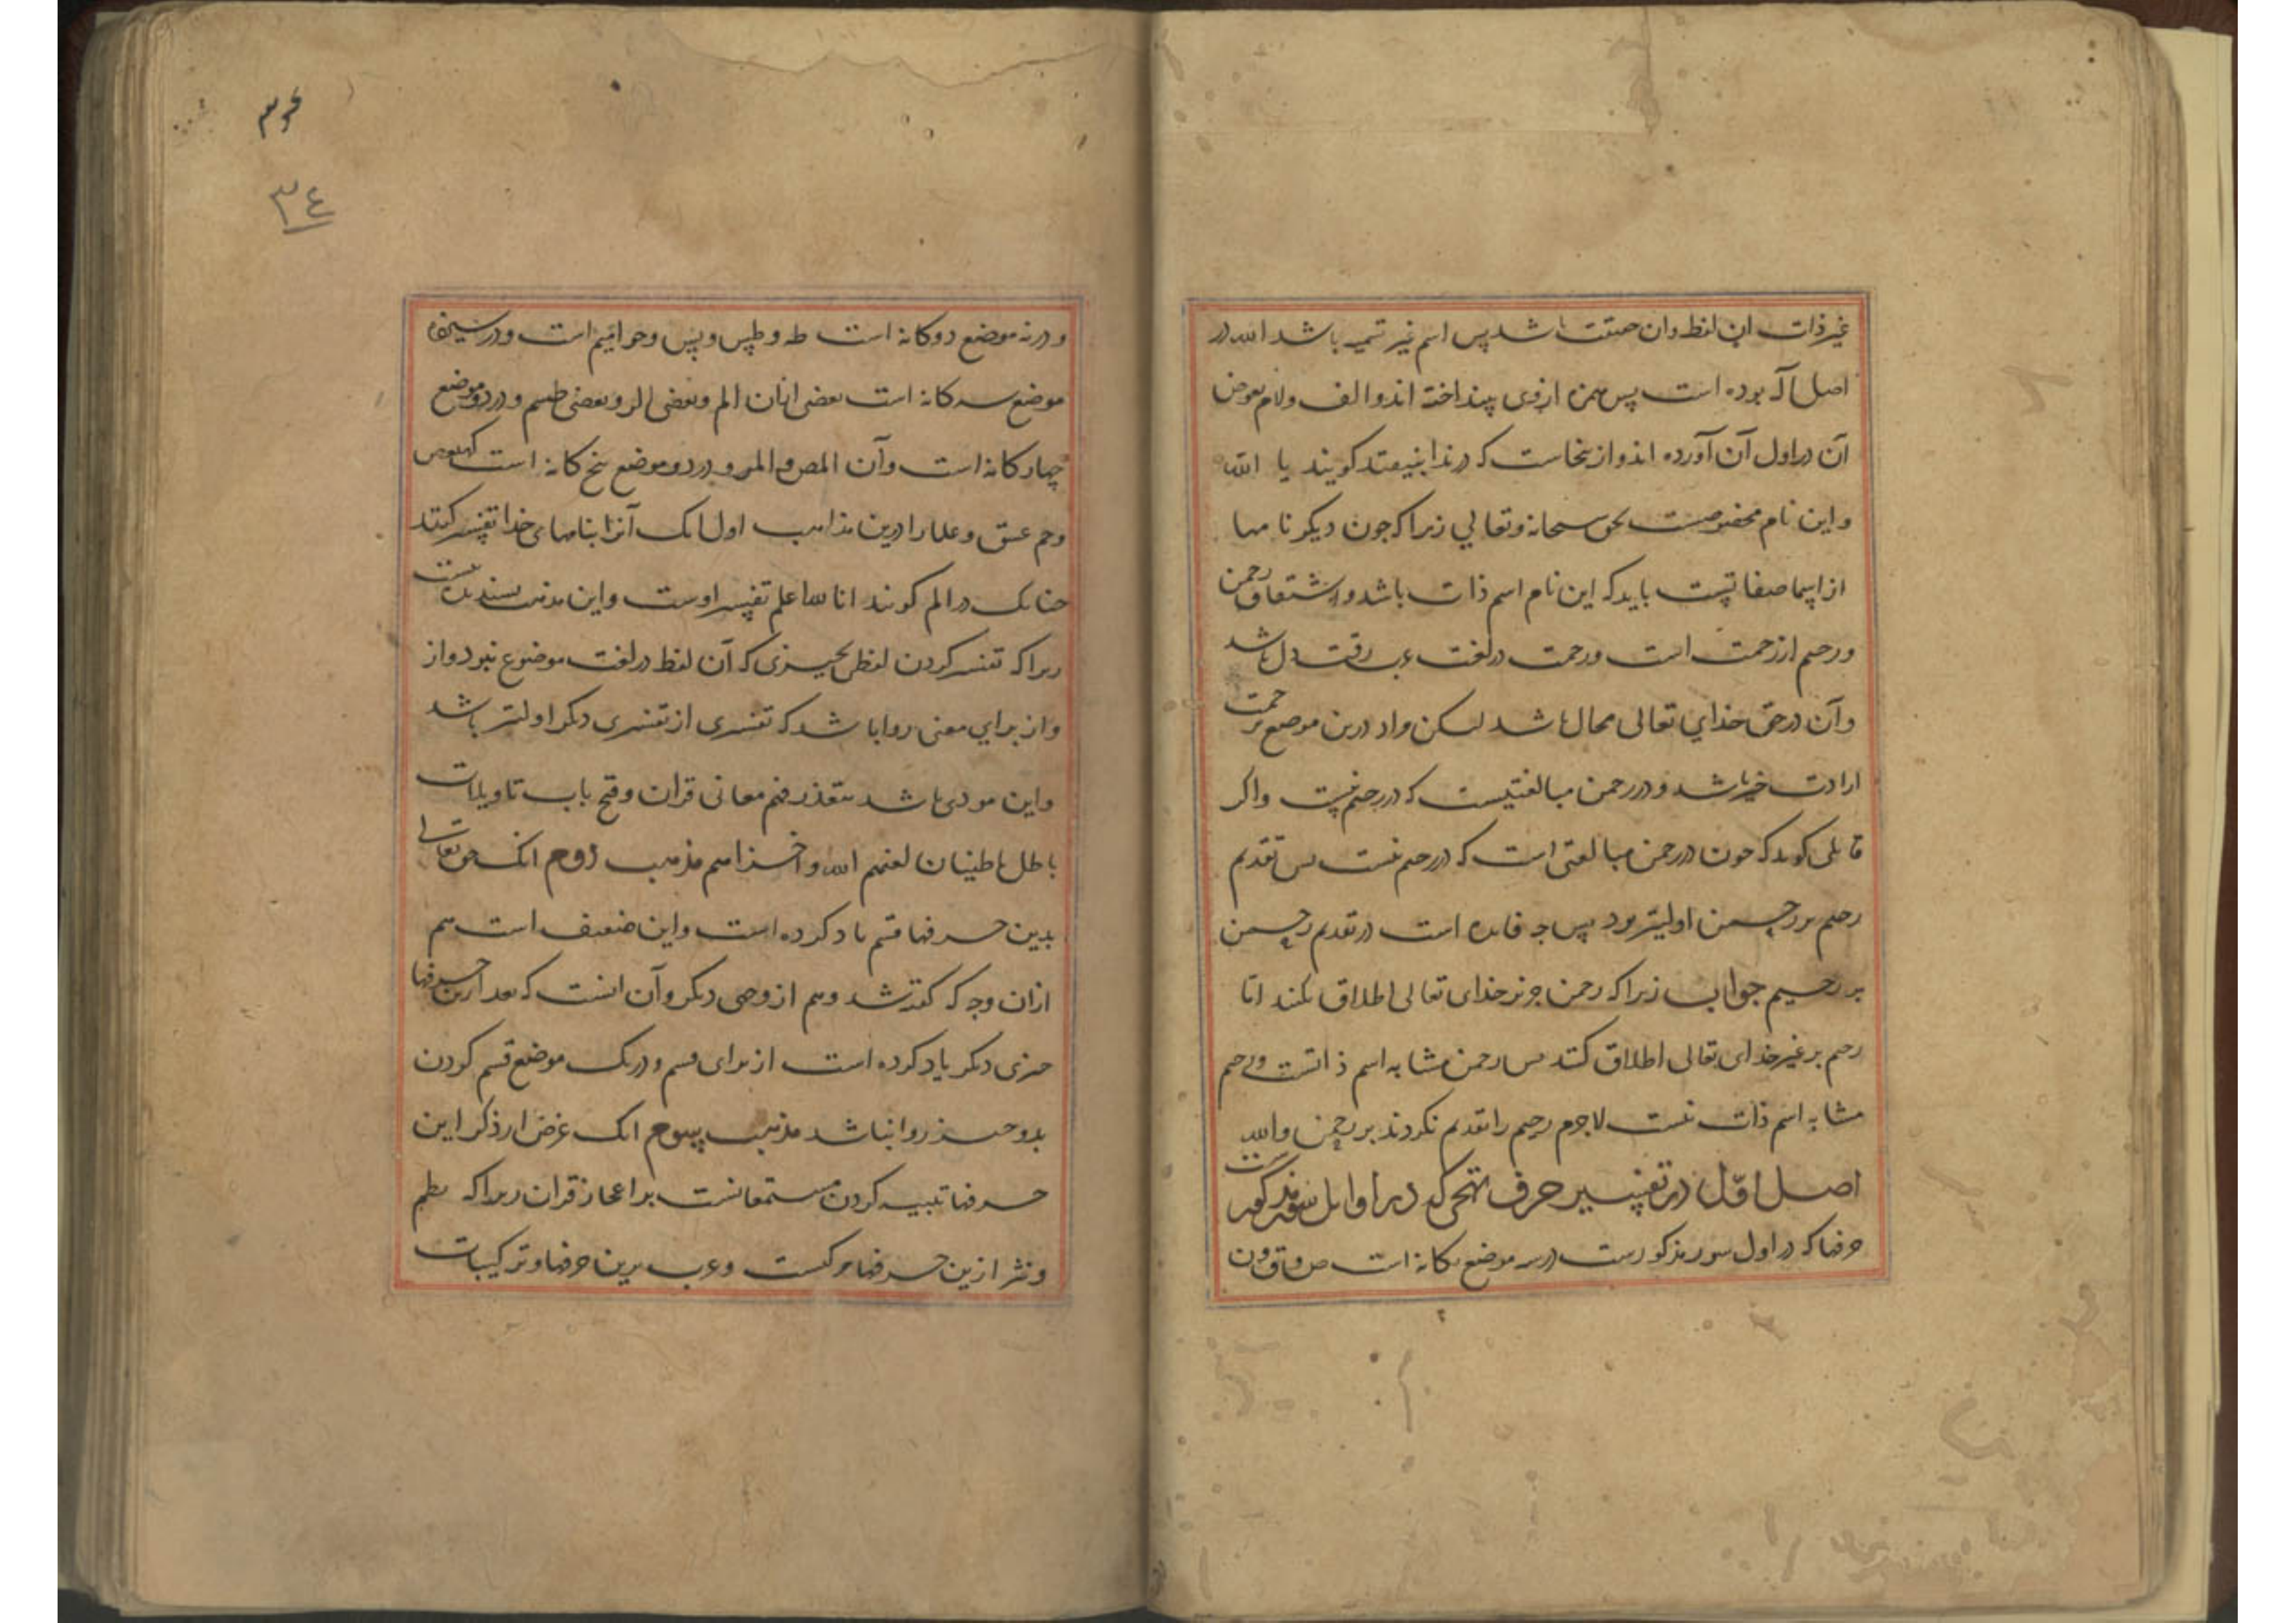 غیر ذات این لفظ وان حقیقت باشد پس اسم غیر تسمیه باشد الله در
اصل آله بوده است پس همزه از وی بینداخته اند و الف ولام بعوض
آن در اول آن آورده اند و از ینجاست که در ندا بنیفتد کویند یا الله
واین نام مخصوصست بحق سبحانه وتعالی زیرا که چون دیکر نامها
از اسما صفاتیست باید که این نام اسم ذات باشد واشتقاق رحمن
ورحیم از رحمت است ورحمت در لغت عرب رقت دل باشد
وآن در حق خدای تعالی محال باشد لیکن مراد درین موضع از رحمت
ارادت خیر باشد و در رحمن مبالغتیست که در رحیم نیست واکر
قایلی کوید که چون در رحمن مبالغتی است که در رحیم نیست پس تقدیم
رحیم بر رحمن اولیتر بود پس چه فایده است در تقدیم رحمن
بر رحیم جواب زیرا که رحمن جز بر خدای تعالی اطلاق نکنند اما
رحیم بر غیر خدای تعالی اطلاق کنند پس رحمن مشابه اسم ذاتست ورحیم
مشابه اسم ذات نیست لاجرم رحیم را تقدیم نکردند بر رحمن والله
اصل اوّل در تفسیر حرف تهجی که در اوایل سور مذکورست
حرفها که در اول سور مذکورست در سه موضع یکانه است ص وق ون
۳۴
۳٤
ودر نه موضع دوکانه است طه وطس ویس وحوامیم است ودر سیزده
موضع سه کانه است بعضی ازان الم وبعضی الر وبعضی طسم ودر دو موضع
چهارکانه است وآن المص والمر ودر دو موضع پنج کانه است کهیعص
وحم عسق وعلما را درین مذاهب اول انک آنرا بنامهای خدا تفسیر کنند
چنانک در الم کویند انا الله اعلم تفسیر اوست واین مذهب پسندیده نیست
زیرا که تفسیر کردن لفظ بچیزی که آن لفظ در لغت موضوع نبود از
واز برای معنی روا باشد که تفسیری از تفسیری دیکر اولیتر باشد
واین مودی باشد بتعذر فهم معانی قران وفتح باب تاویلات
باطل باطنیان لعنهم الله واخزاهم مذهب دوم انک حق تعالی
بدین حرفها قسم یاد کرده است واین ضعیف است هم
ازان وجه که کفته شد وهم از وجهی دیکر وآن انست که بعد ازین حرفها
چیزی دیکر یاد کرده است از برای قسم ودر یک موضع قسم کردن
بدو چیز روا نباشد مذهب سوم انک غرض از ذکر این
حرفها تنبیه کردن مستمعانست بر اعجاز قران زیرا که نظم
ونثر ازین حرفها مرکبست وعرب برین حرفها وترکیبات